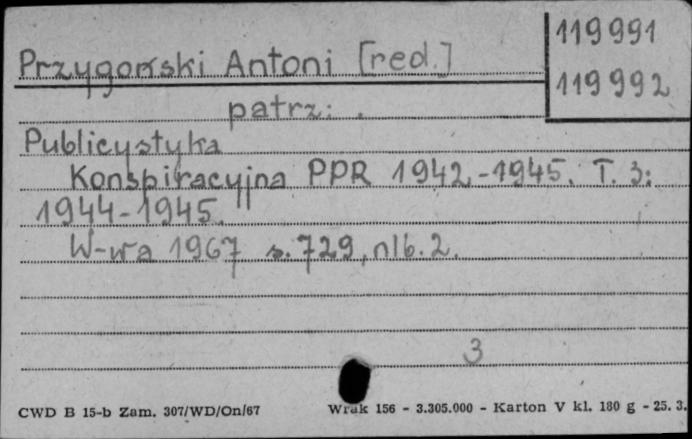 119991
Przygoński Antoni [red.]
119992
patrz:
Publicystyka
Konspiracyjna PPR 1942-1945. T. 3:
1944-1945.
W-wa 1967 s. 729, nlb. 2.
3
CWD B 15-b Zam. 307/WD/On/67 Wrak 156 - 3.305.000 - Karton V kl. 180 g - 25. 3.